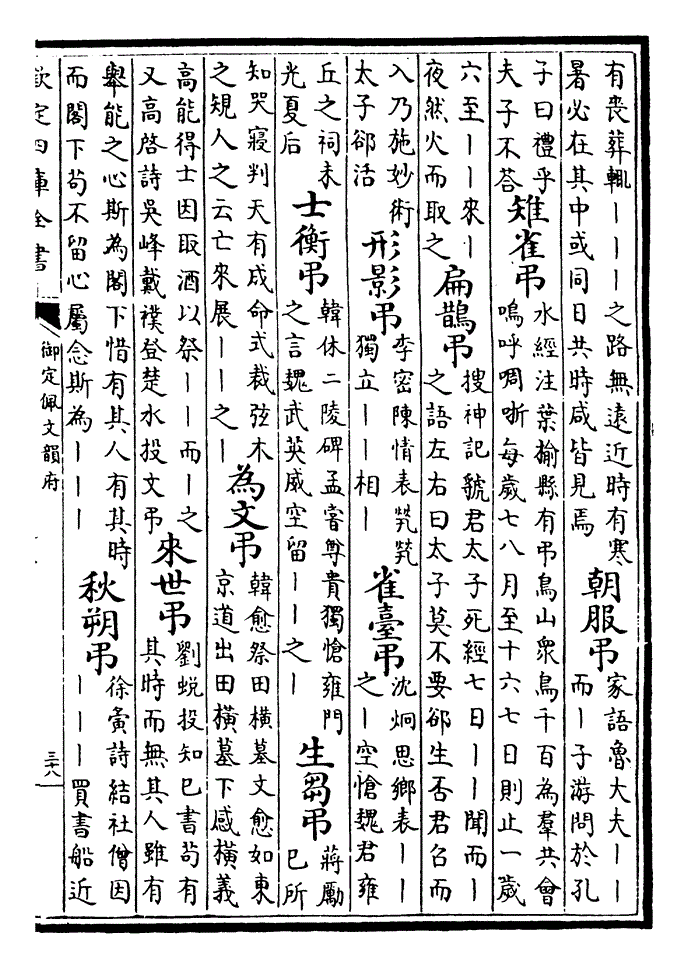 有喪葬輒丨丨丨之路無遠近時有寒
暑必在其中或同日共時咸皆見焉
朝服弔
家語魯大夫丨丨
而丨子游問於孔
子曰禮乎
夫子不答
雉雀弔
水經注葉榆縣有弔鳥山衆鳥千百為羣共會
嗚呼啁哳每歲七八月至十六七日則止一歲
六至丨丨來丨
夜然火而取之
扁鵲弔
搜神記虢君太子死經七日丨丨聞而丨
之語左右曰太子莫不要卻生否君召而
入乃施妙術
太子卻活
形影弔
李密陳情表煢煢
獨立丨丨相丨
雀臺弔
沈炯思鄉表丨丨
之丨空愴魏君雍
丘之祠未
光夏后
士衡弔
韓休二陵碑孟嘗尊貴獨愴雍門
之言魏武英威空留丨丨之丨
生芻弔
蔣勵
已所
知哭寢判天有成命式裁弦木
之規人之云亡來展丨丨之丨
為文弔
韓愈祭田橫墓文愈如東
京道出田橫墓下感橫義
高能得士因取酒以祭丨丨而丨之
又高啓詩吳峰戴襆登楚水投文弔
來世弔
劉蛻投知已書苟有
其時而無其人雖有
舉能之心斯為閣下惜有其人有其時
而閣下苟不留心屬念斯為丨丨丨
秋朔弔
徐夤詩結社僧因
丨丨丨買書船近
欽定四庫全書
御定佩文韻府